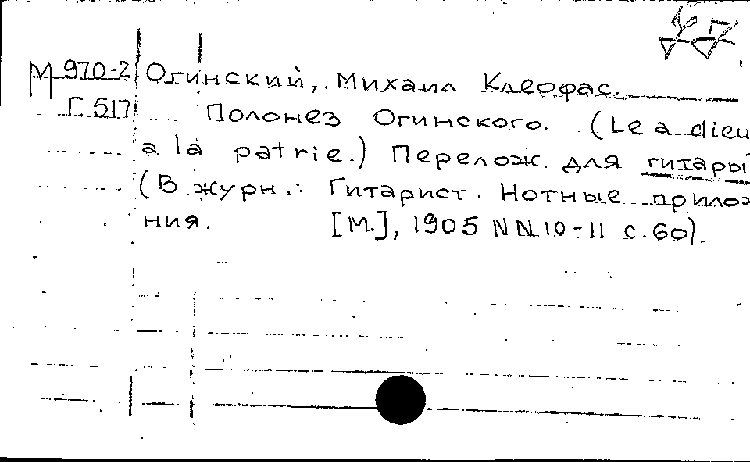 М 970-2 Огинский, Михаил Клеофас.
Г 517 Полонез Огинского. (Le a dieu
a la patrie.) Перелож. для гитары
(В журн.: Гитарист. Нотные прилож
ния. [М.], 1905 NN 10-11 с. 60).